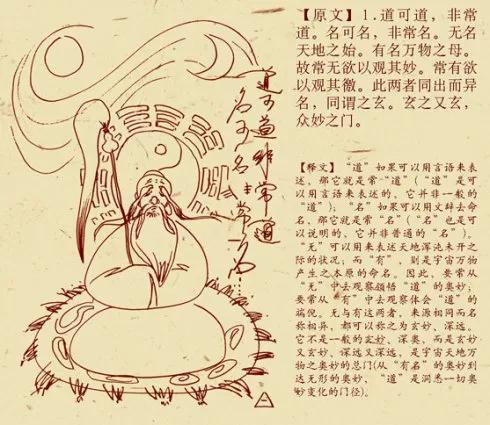 【原文】1.道可道，非常
道。名可名，非常名。无名
天地之始。有名万物之母。
故常无欲以观其妙。常有欲
以观其徼。此两者同出而异
名，同谓之玄。玄之又玄，
众妙之门。
【释文】“道”如果可以用言语来表
述，那它就是常“道”（“道”是可
以用言语来表述的，它并非一般的
“道”）；“名”如果可以用文辞去命
名，那它就是常“名”（“名”也是可
以说明的，它并非普通的“名”）。
“无”可以用来表述天地浑沌未开之
际的状况；而“有”，则是宇宙万物
产生之本原的命名。因此，要常从
“无”中去观察领悟“道”的奥妙；
要常从“有”中去观察体会“道”的
端倪。无与有这两者，来源相同而名
称相异，都可以称之为玄妙、深远。
它不是一般的玄妙、深奥，而是玄妙
又玄妙、深远又深远，是宇宙天地万
物之奥妙的总门（从“有名”的奥妙到
达无形的奥妙，“道”是洞悉一切奥
妙变化的门径）。
道可道非常道